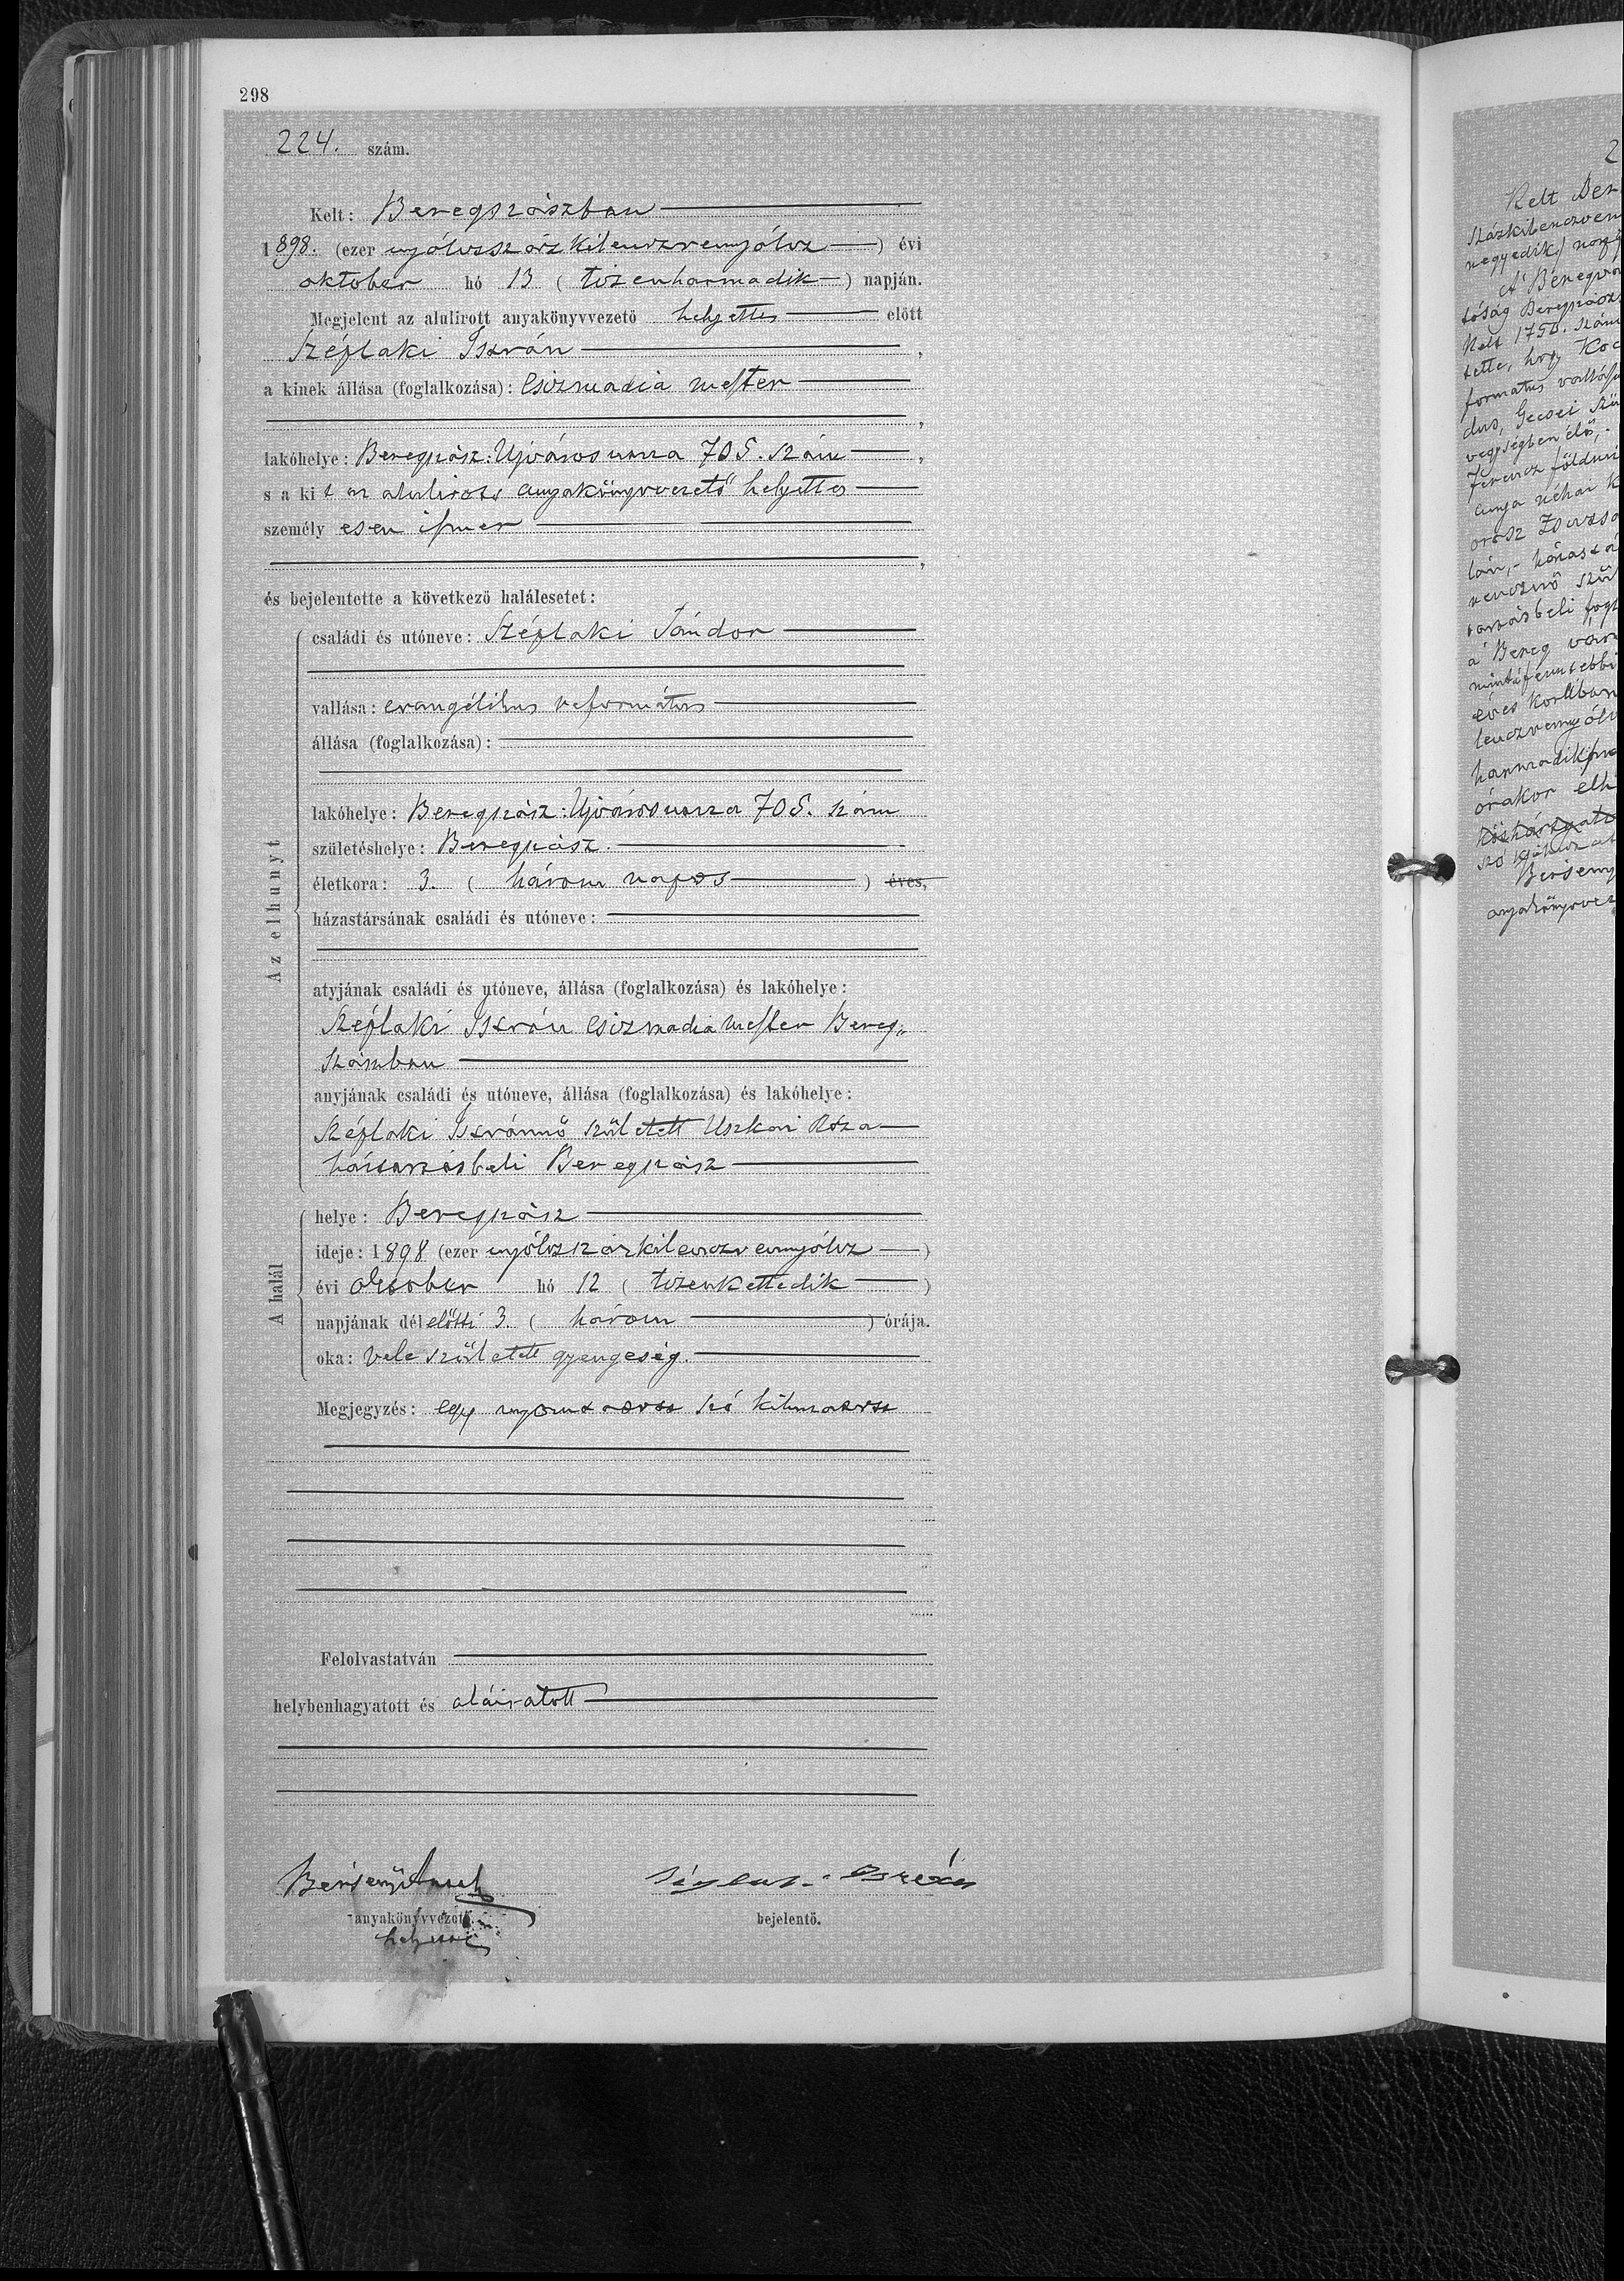 298
224. szám.
Kelt: Beregszászban
1898. (ezer nyólczszázkilenczvennyólcz) évi
oktober hó 13 (tizenharmadik) napján.
Megjelent az alulirott anyakönyvvezető helyettes előtt
Széplaki István,
a kinek állása (foglalkozása): Csizmadia mester
,
lakóhelye: Beregszász: Ujváros utcza 705. szám,
s a kit az alulirott anyakönyvvezető helyettes
személyesen ismer
,
és bejelentette a következő halálesetet:
Az elhunyt
családi és utóneve: Széplaki Sándor
vallása: evangélikus református
állása (foglalkozása):
lakóhelye: Beregszász: Ujváros utcza 705. szám
születéshelye: Beregszász.
életkora: 3. (három napos) éves,
házastársának családi és utóneve:
atyjának családi és utóneve, állása (foglalkozása) és lakóhelye:
Széplaki István Csizmadia mester Bereg„
szászban
anyjának családi és utóneve, állása (foglalkozása) és lakóhelye:
Széplaki Istvánnő született Uszkai Róza
háztartásbeli Beregszász
A halál
helye: Beregszász
ideje: 1898 (ezer nyólczszázkilenczvennyólcz)
évi október hó 12 (tizenkettedik)
napjának délelőtti 3. (három) órája.
oka: Vele született gyengeség.
Megjegyzés: egy nyomtatott szó kihuzatott
Felolvastatván
helybenhagyatott és aláiratott
Bersenyi
anyakönyvvezető.
helyettes
István
bejelentő.
Kelt Ber
százkilenczven
negyedik) nap
A Beregvár
tóság Beregszász
Kelt 1750. szám
tette, hogy Koc
formatus vallás
dus, Gecsei Szü
végségben élő,
Ferencz földmi
anya néhai K
orosz Zsuzsa
lán,- házastá
született
tartásbeli fog
a Bereg vár
mint a fenntebbi
éves korában
lenczvennyólc
harmadik) na
órakor elh
szó
Bersenyi
anyakönyvvez